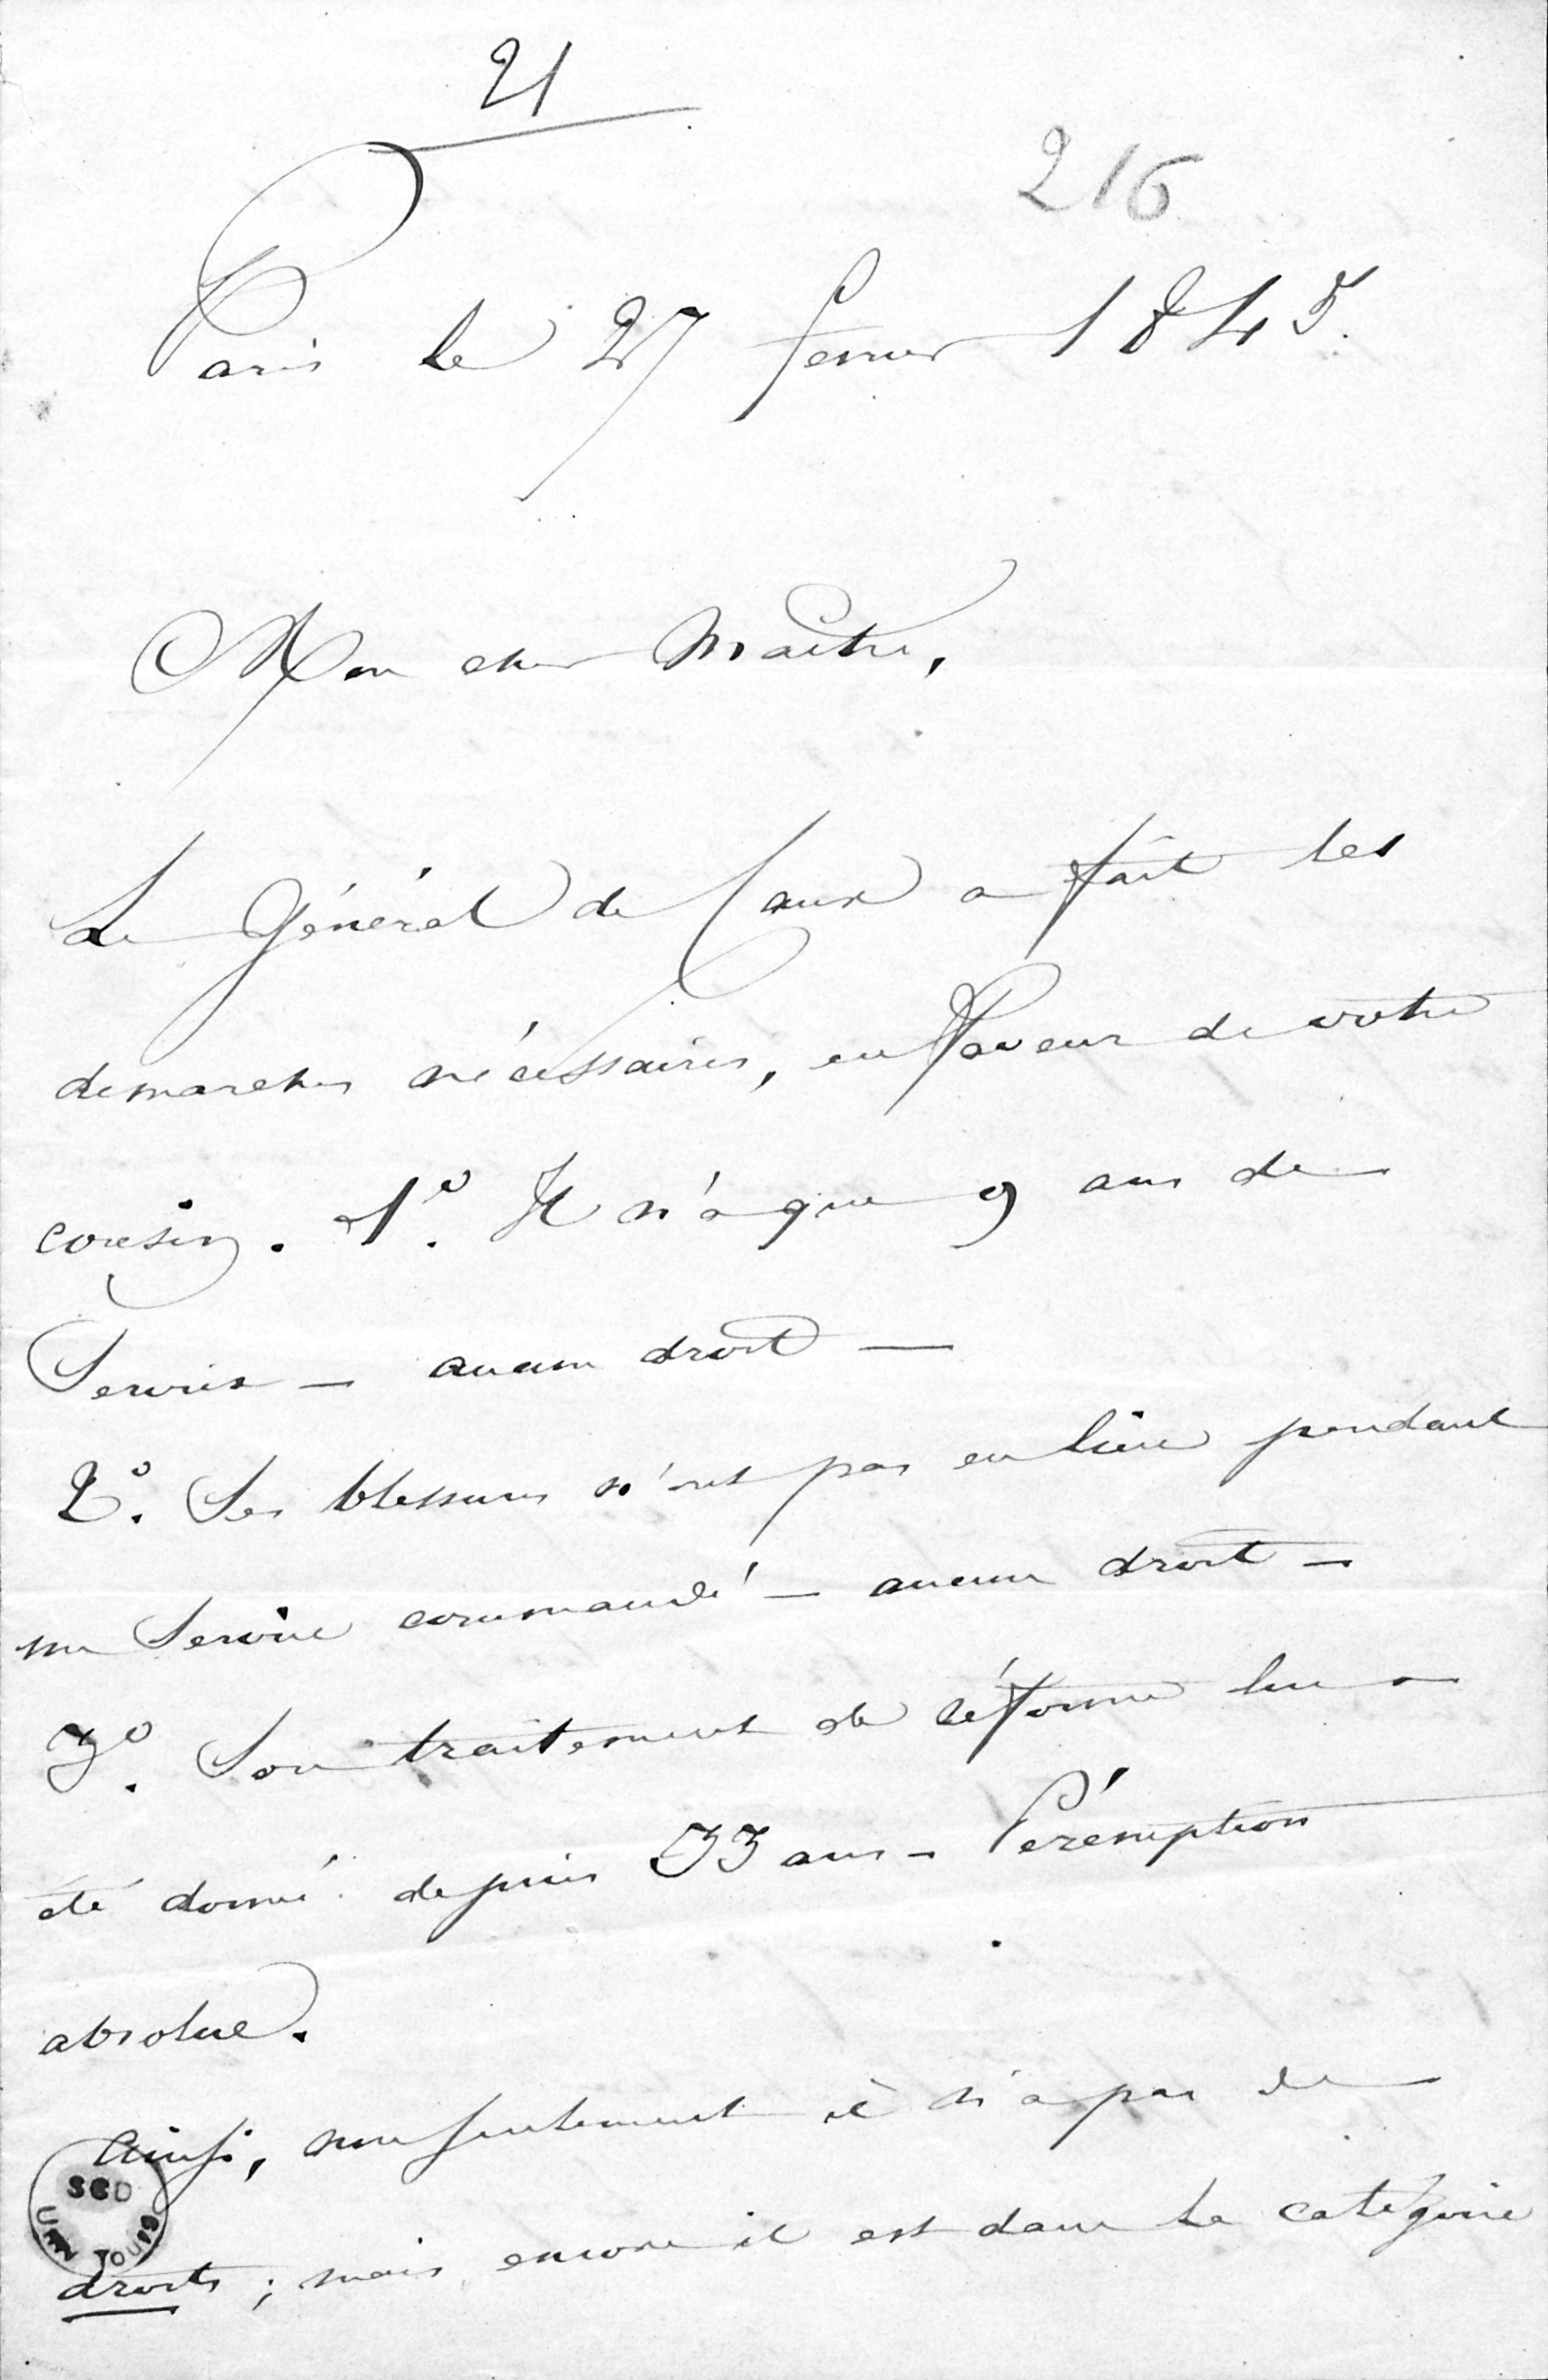 21
216
Paris le 27 fevrier 1845.
Mon cher Maître,
Le Général de Caux a fait les
demarches nécessaires, en faveur de votre
cousin. 1º. Il n'a que 9 ans de
Service — aucun droit —
2º. Ses blessures n'ont pas eu lieu pendant
un Service commandé — aucun droit —
3º. Son traitement de réforme lui a
été donné depuis 33 ans — Péremption
absolue.
Ainsi, non seulement il n'a pas de
droits ; mais encore il est dans la catégorie
SCD
UNIV TOULOUSE